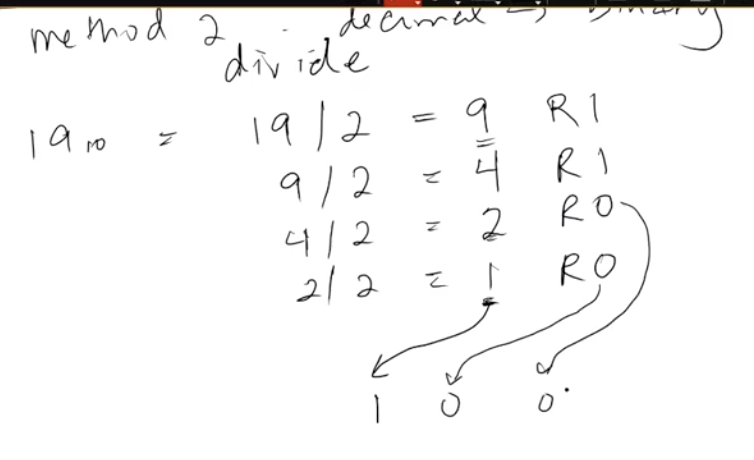 method 2 - decimal → binary
divide
19₁₀ = 19 / 2 = 9 R1
9 / 2 = 4 R1
4 / 2 = 2 R0
2 / 2 = 1 R0
1 0 0